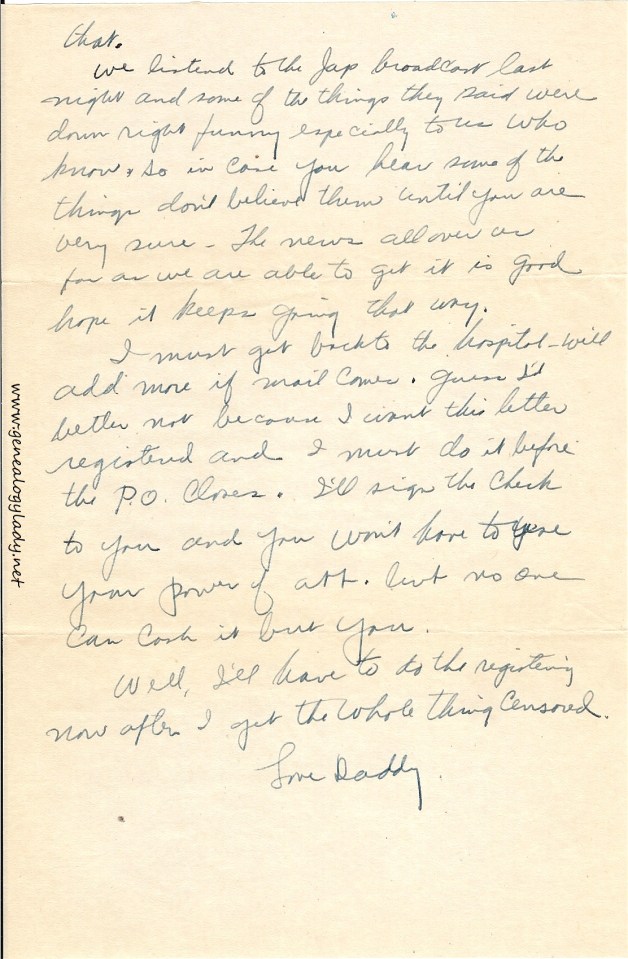 that.
We listend to the Jap broadcast last
night and some of the things they said were
down right funny especially to us who
know, so in case you hear some of the
things don't believe them until you are
very sure - The news all over as
far as we are able to get it is good
hope it keeps going that way.
I must get back to the hospital - will
add more if mail comes. Guess I'd
better not because I want this letter
registered and I must do it before
the P.O. closes. I'll sign the check
to you and you won't have to use
your power of att. but no one
can cash it but you.
Well, I'll have to do the registering
now after I get the whole thing censored.
Love Daddy.
www.genealogylady.net